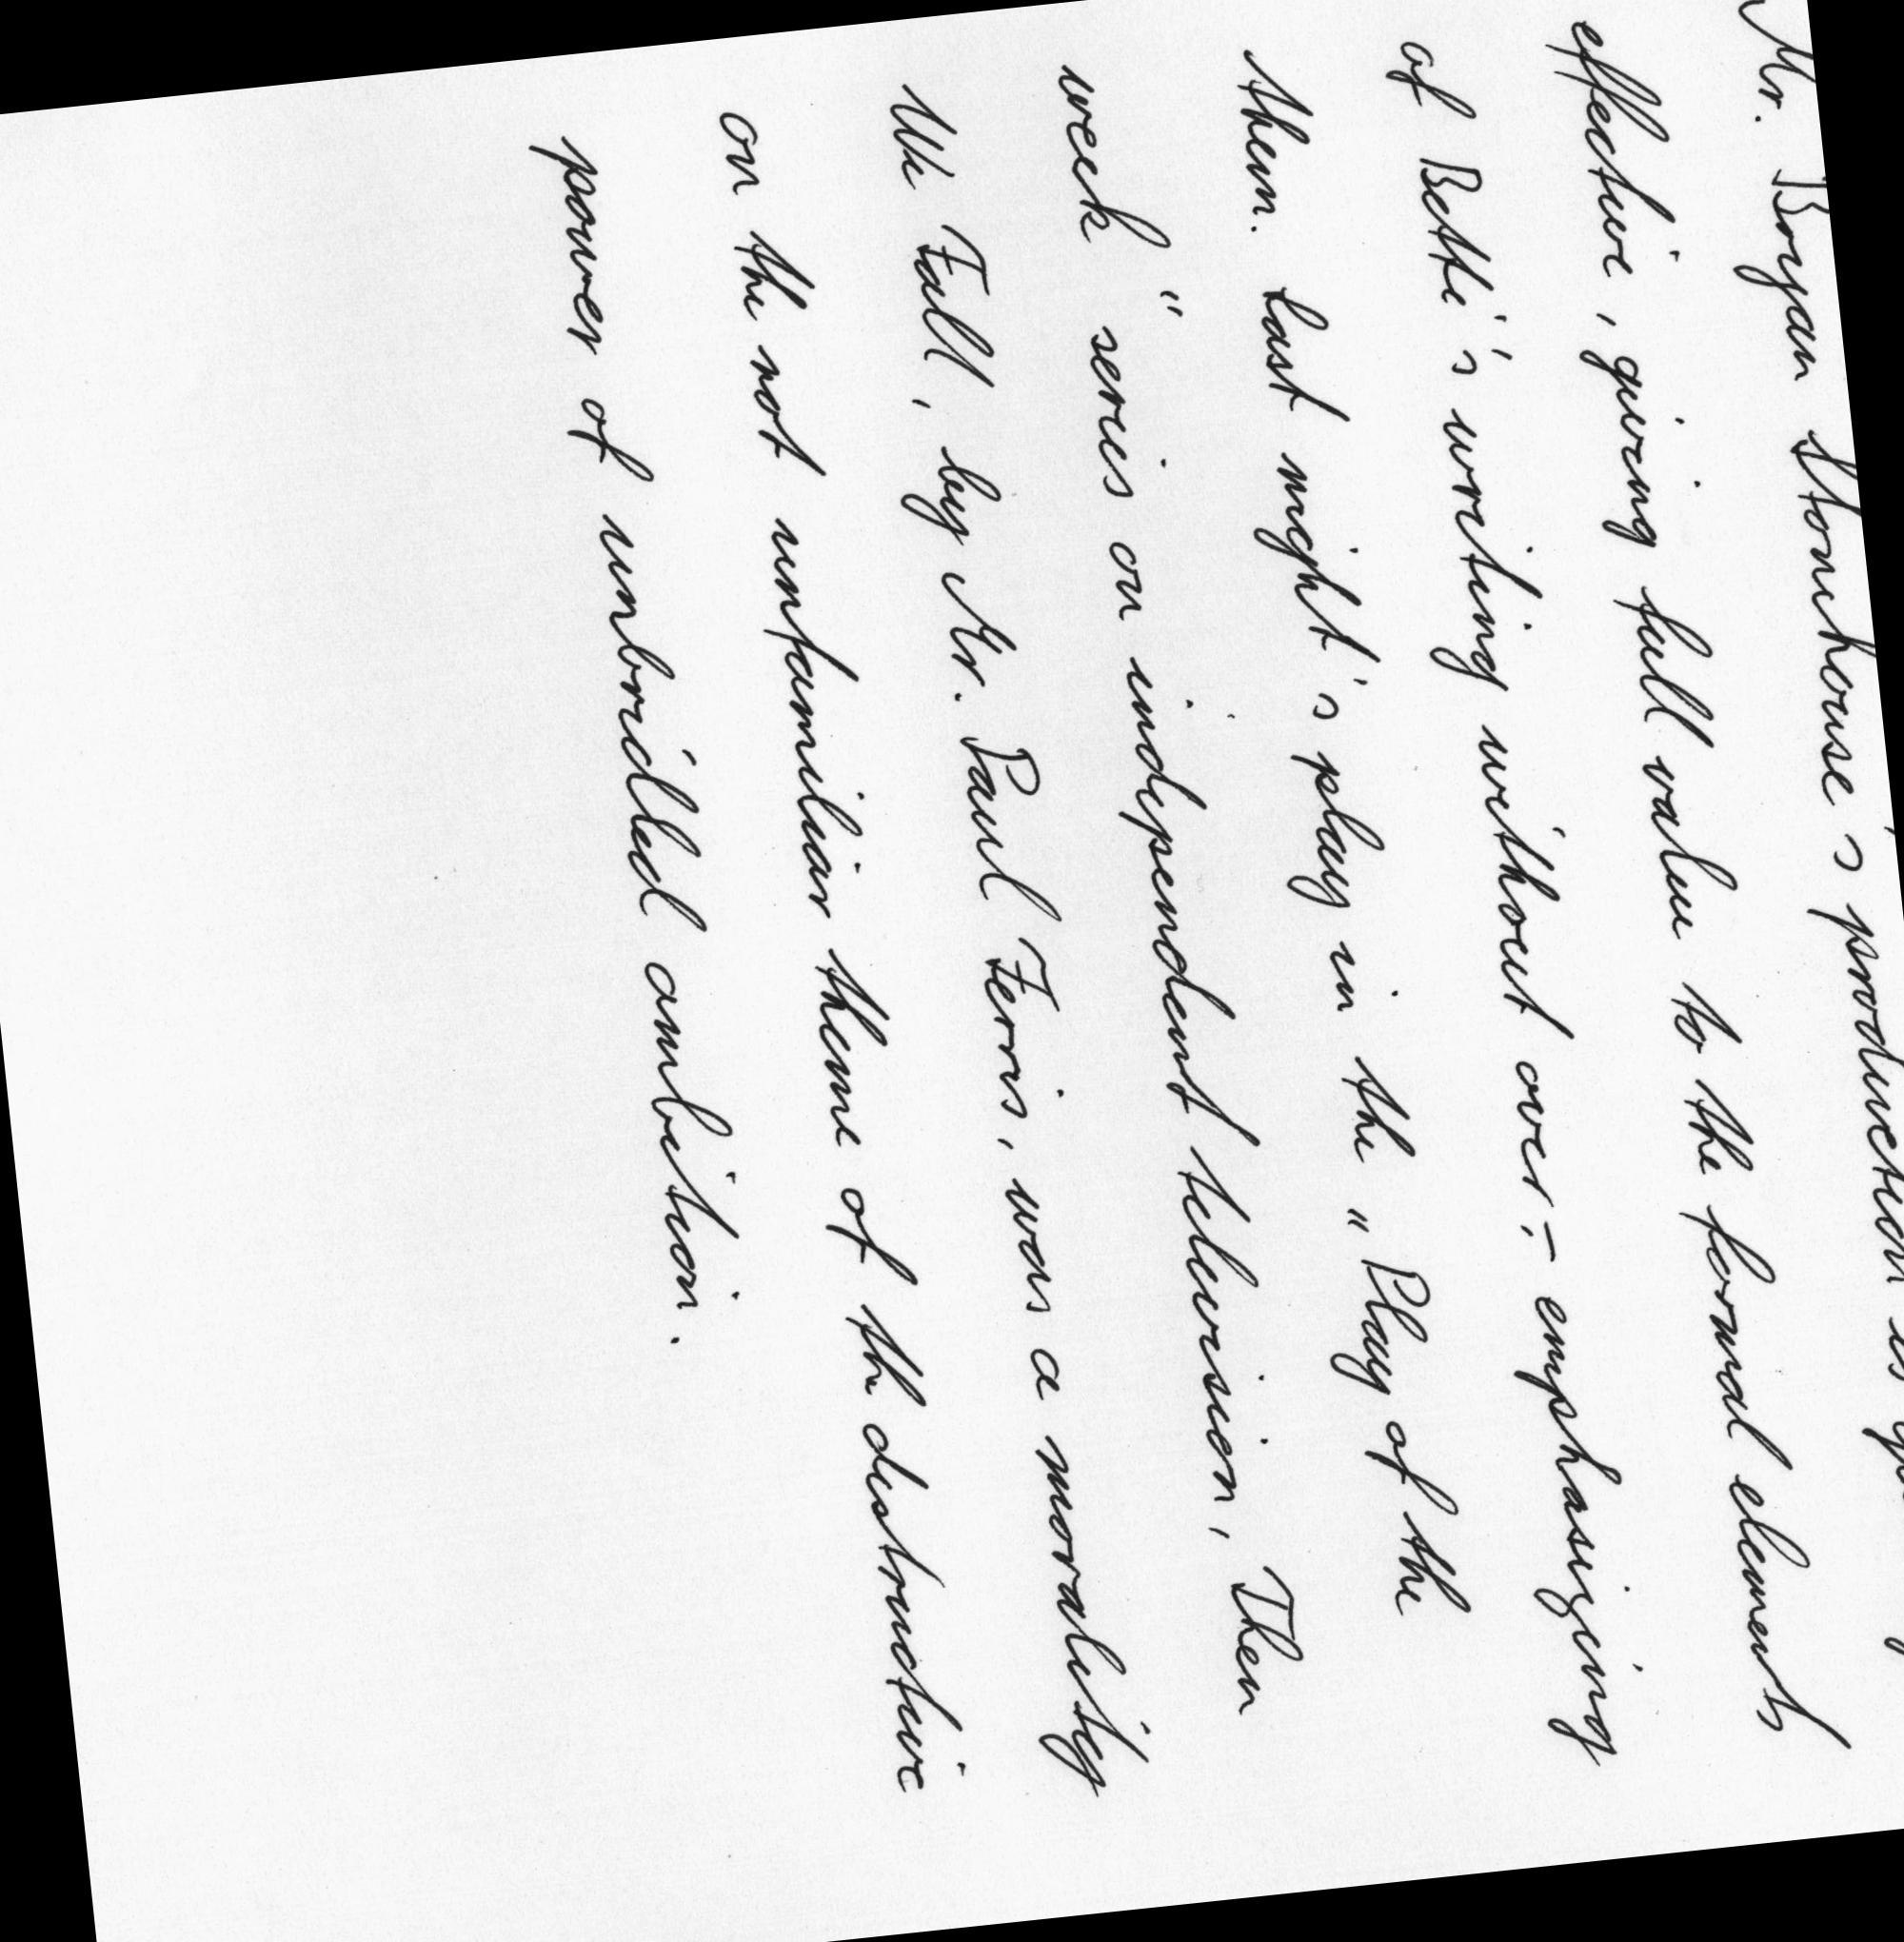 Mr. Boryan Stonehouse's production is
effective, giving full value to the formal elements
of Betti's writing without over-emphasizing
them. Last night's play in the "Play of the
week" series on independent television, Then
We Fall, by Mr. Paul Ferris, was a morality
on the not unfamiliar theme of the destructive
power of unbridled ambition.